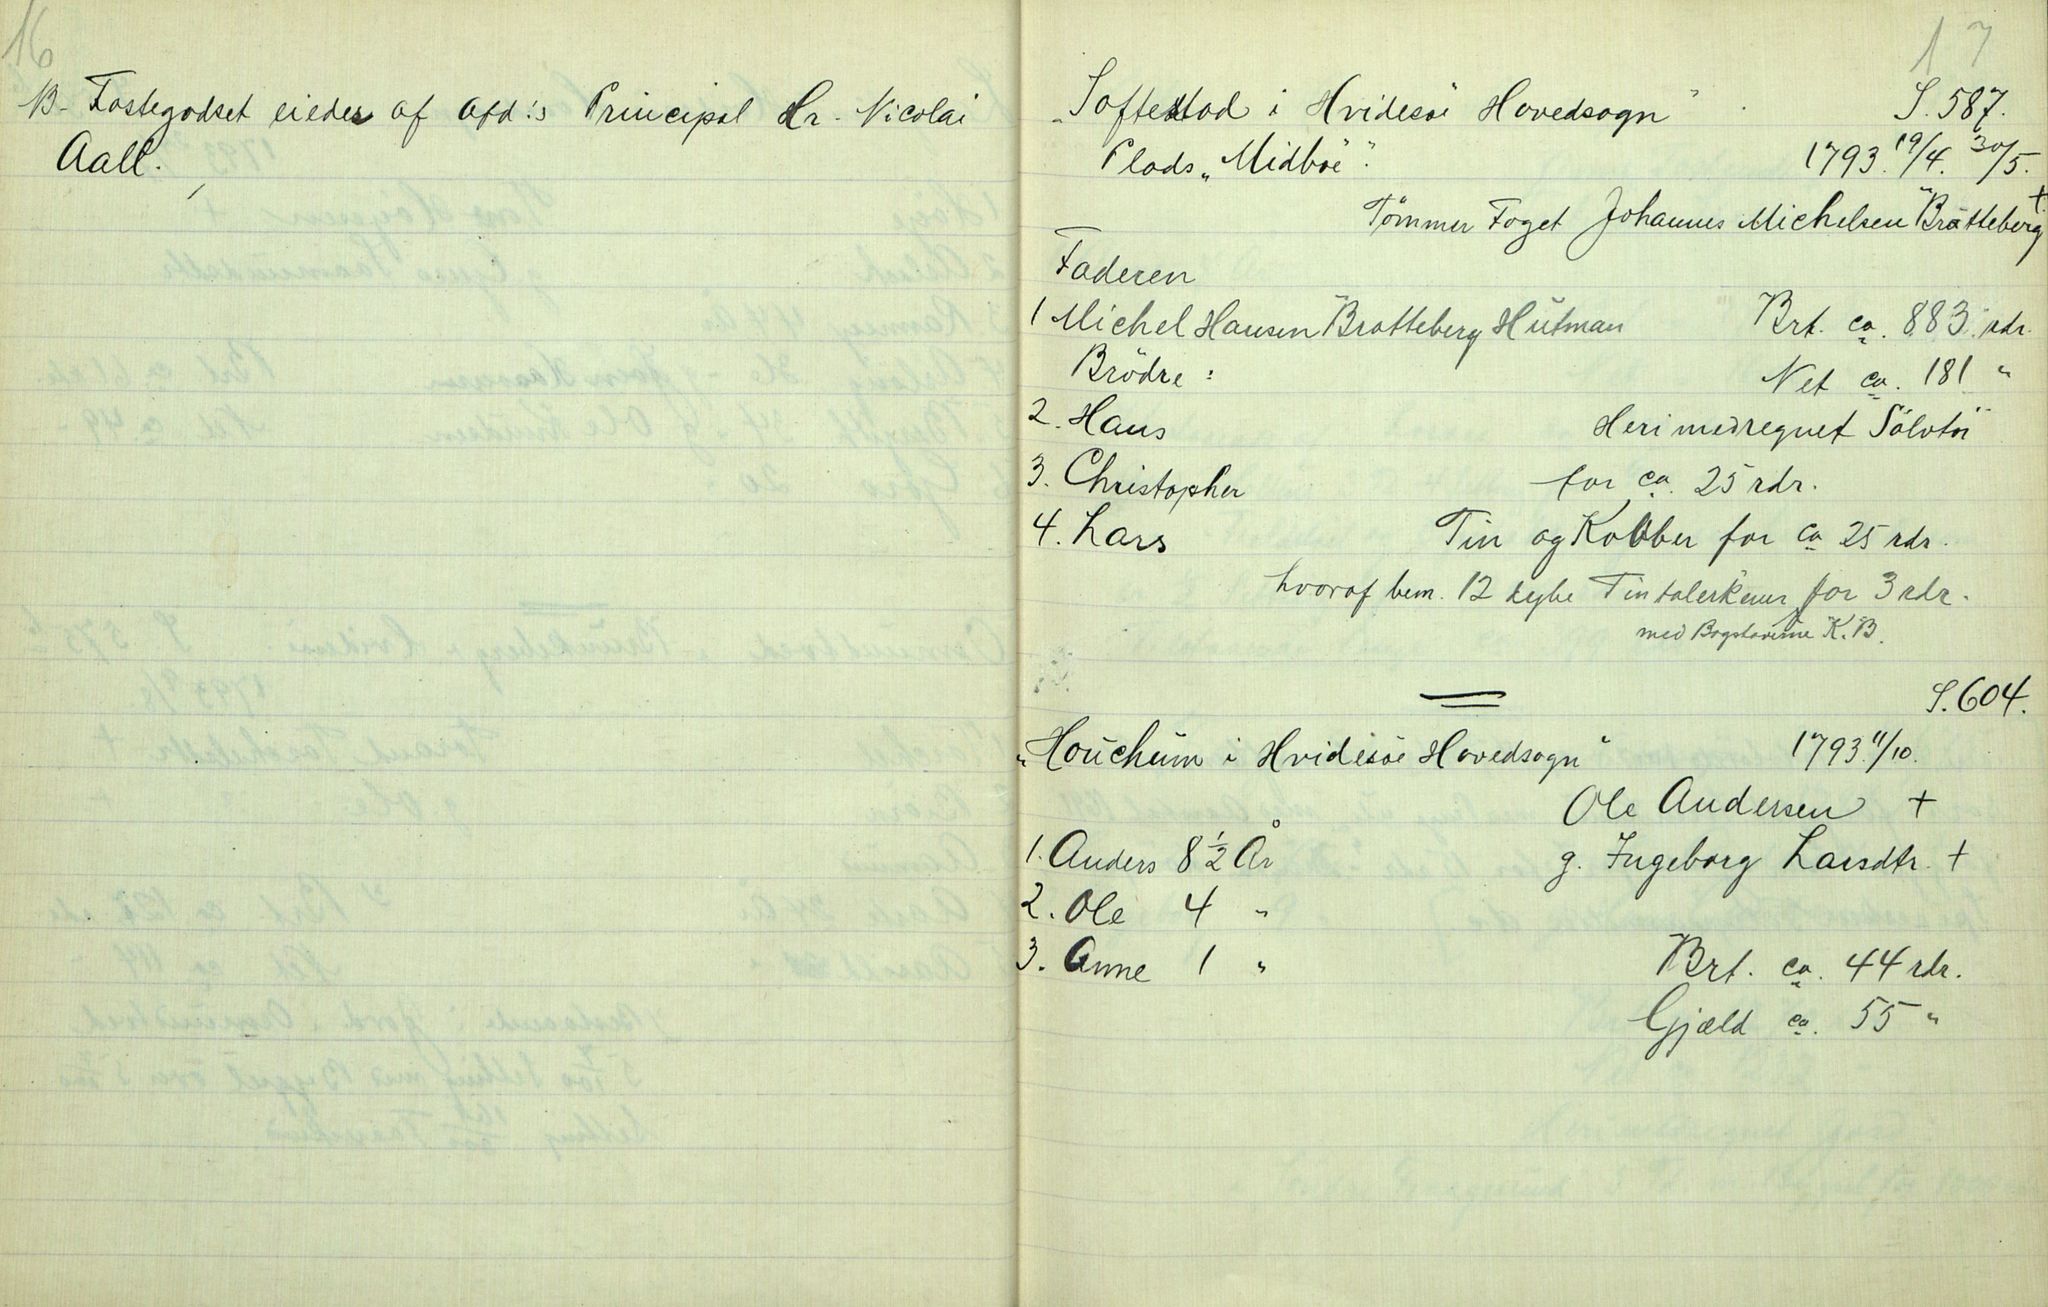 16
B- Fastegodset eiedes af afd:s Principal Hr. Nicolai
Aall.
17
"Softestad i Hvidesöe Hovedsogn" S. 587.
Plads "Midböe". 1793. 19/4. 30/5.
Tömmer Foget Johannes Michelsen "Bratteberg" +
Faderen
1 Michel Hansen "Bratteberg" Hutman Brt. ca. 883 rdr.
Brödre: Net ca. 181 "
2. Hans Heri medregnet Sölvtöi
3. Christopher for ca. 25 rdr.
4. Lars Tin og Kobber for ca 25 rdr.
hvoraf bem. 12 dybe Tintalerkener for 3 rdr.
med Bogstaverne K. B.
S. 604.
"Houchum i Hvidesöe Hovedsogn" 1793 11/10.
Ole Andersen +
1. Anders 8 1/2 År g. Ingeborg Larsdtr. +
2. Ole 4 "
3. Anne 1 " Brt. ca. 44 rdr.
Gjæld ca. 55 "